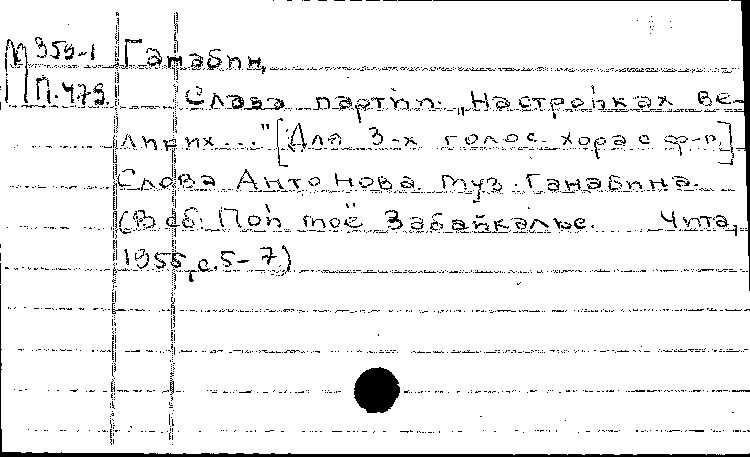 М 359-1 Ганабин,
П.473.
Слава партии. „На стройках ве-
ликих..." [Для 3-х голос. хора с ф-п.]
Слова Антонова. Муз. Ганабина.
(В сб. Пой моё Забайкалье. Чита,
1955, с. 5-7)